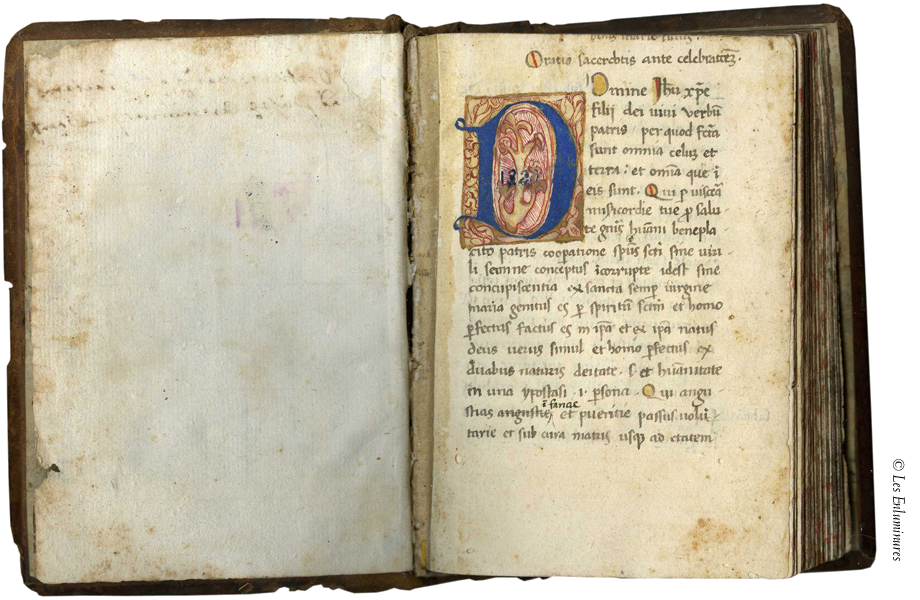 Oratio sacerdotis ante celebrationem.
Domine Jhu xpe
filij dei uiui verbu
patris per quod fcta
sunt omnia celuz et
terra: et omia que i
eis sunt. Qui p uiscea
misicordie tue p salu
te gnis huani benepla
cito patris coopatione spus scti sine uiri
li semine conceptus icorrupte idest sine
concupiscentia ex sancta semp uirgine
maria genitus es p spiritu scm et homo
pfectus factus es in ipa et ex ipa natus
deus uerus simul et homo pfectus ex
duabus naturis deitate. s. et huanitate
in una ypostasi .i. psona. Qui angu
stias angustie i fancie et pueritie passus uolu
tarie et sub cura matris usqz ad etatem
© Les Enluminures